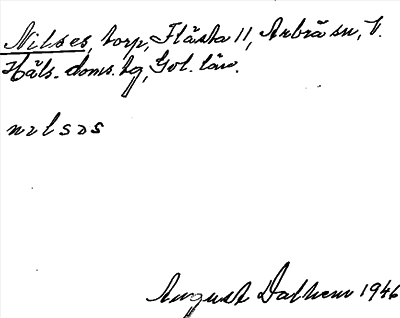 Nilses, torp, Flästa 11, Arbrå sn, V.
Häls. doms. tg, Gvl. län.
nɩlsɜs
August Dalhem 1946